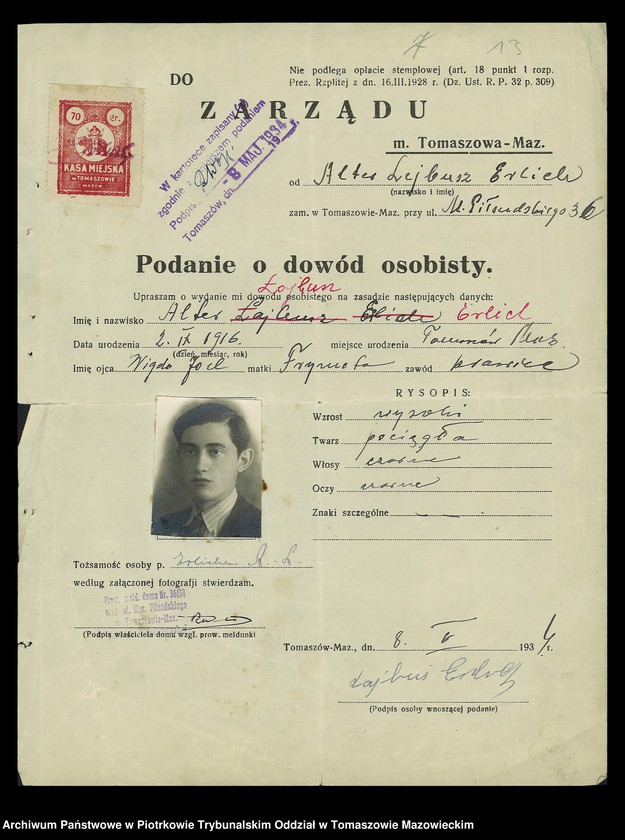 7 13
DO
Nie podlega opłacie stemplowej (art. 18 punkt 1 rozp.
Prez. Rzplitej z dn. 16.III.1928 r. (Dz. Ust. R. P. 32 p. 309)
ZARZĄDU
m. Tomaszowa-Maz.
70 gr.
KASA MIEJSKA
W TOMASZOWIE
MAZOW.
W kartotece zapisany(a)
zgodnie z niniejszem podaniem
Podpis
Tomaszów, dn. 8 MAJ. 1934 r.
od Alter Lejbusz Erlich
(nazwisko i imię)
zam. w Tomaszowie-Maz. przy ul. M. Piłsudskiego 36
Podanie o dowód osobisty.
Łajbuś
Upraszam o wydanie mi dowodu osobistego na zasadzie następujących danych:
Imię i nazwisko Alter Lajbusz Erlich Erlich
Data urodzenia 2. IV 1916. miejsce urodzenia Tomaszów Maz.
(dzień, miesiąc, rok)
Imię ojca Wigdor Joel matki Frymeta zawód krawiec
RYSOPIS:
Wzrost wysoki
Twarz pociągła
Włosy czarne
Oczy czarne
Znaki szczególne —
Tożsamość osoby p. Erlicha A. L.
według załączonej fotografji stwierdzam.
Prow. meld. domu Nr. 36/38
przy ul. Mar. Piłsudskiego
w Tomaszowie-Maz.
(Podpis właściciela domu wzgl. prow. meldunki
Tomaszów-Maz., dn. 8. V 1934 r.
Łajbuś Erlich
(Podpis osoby wnoszącej podanie)
Archiwum Państwowe w Piotrkowie Trybunalskim Oddział w Tomaszowie Mazowieckim